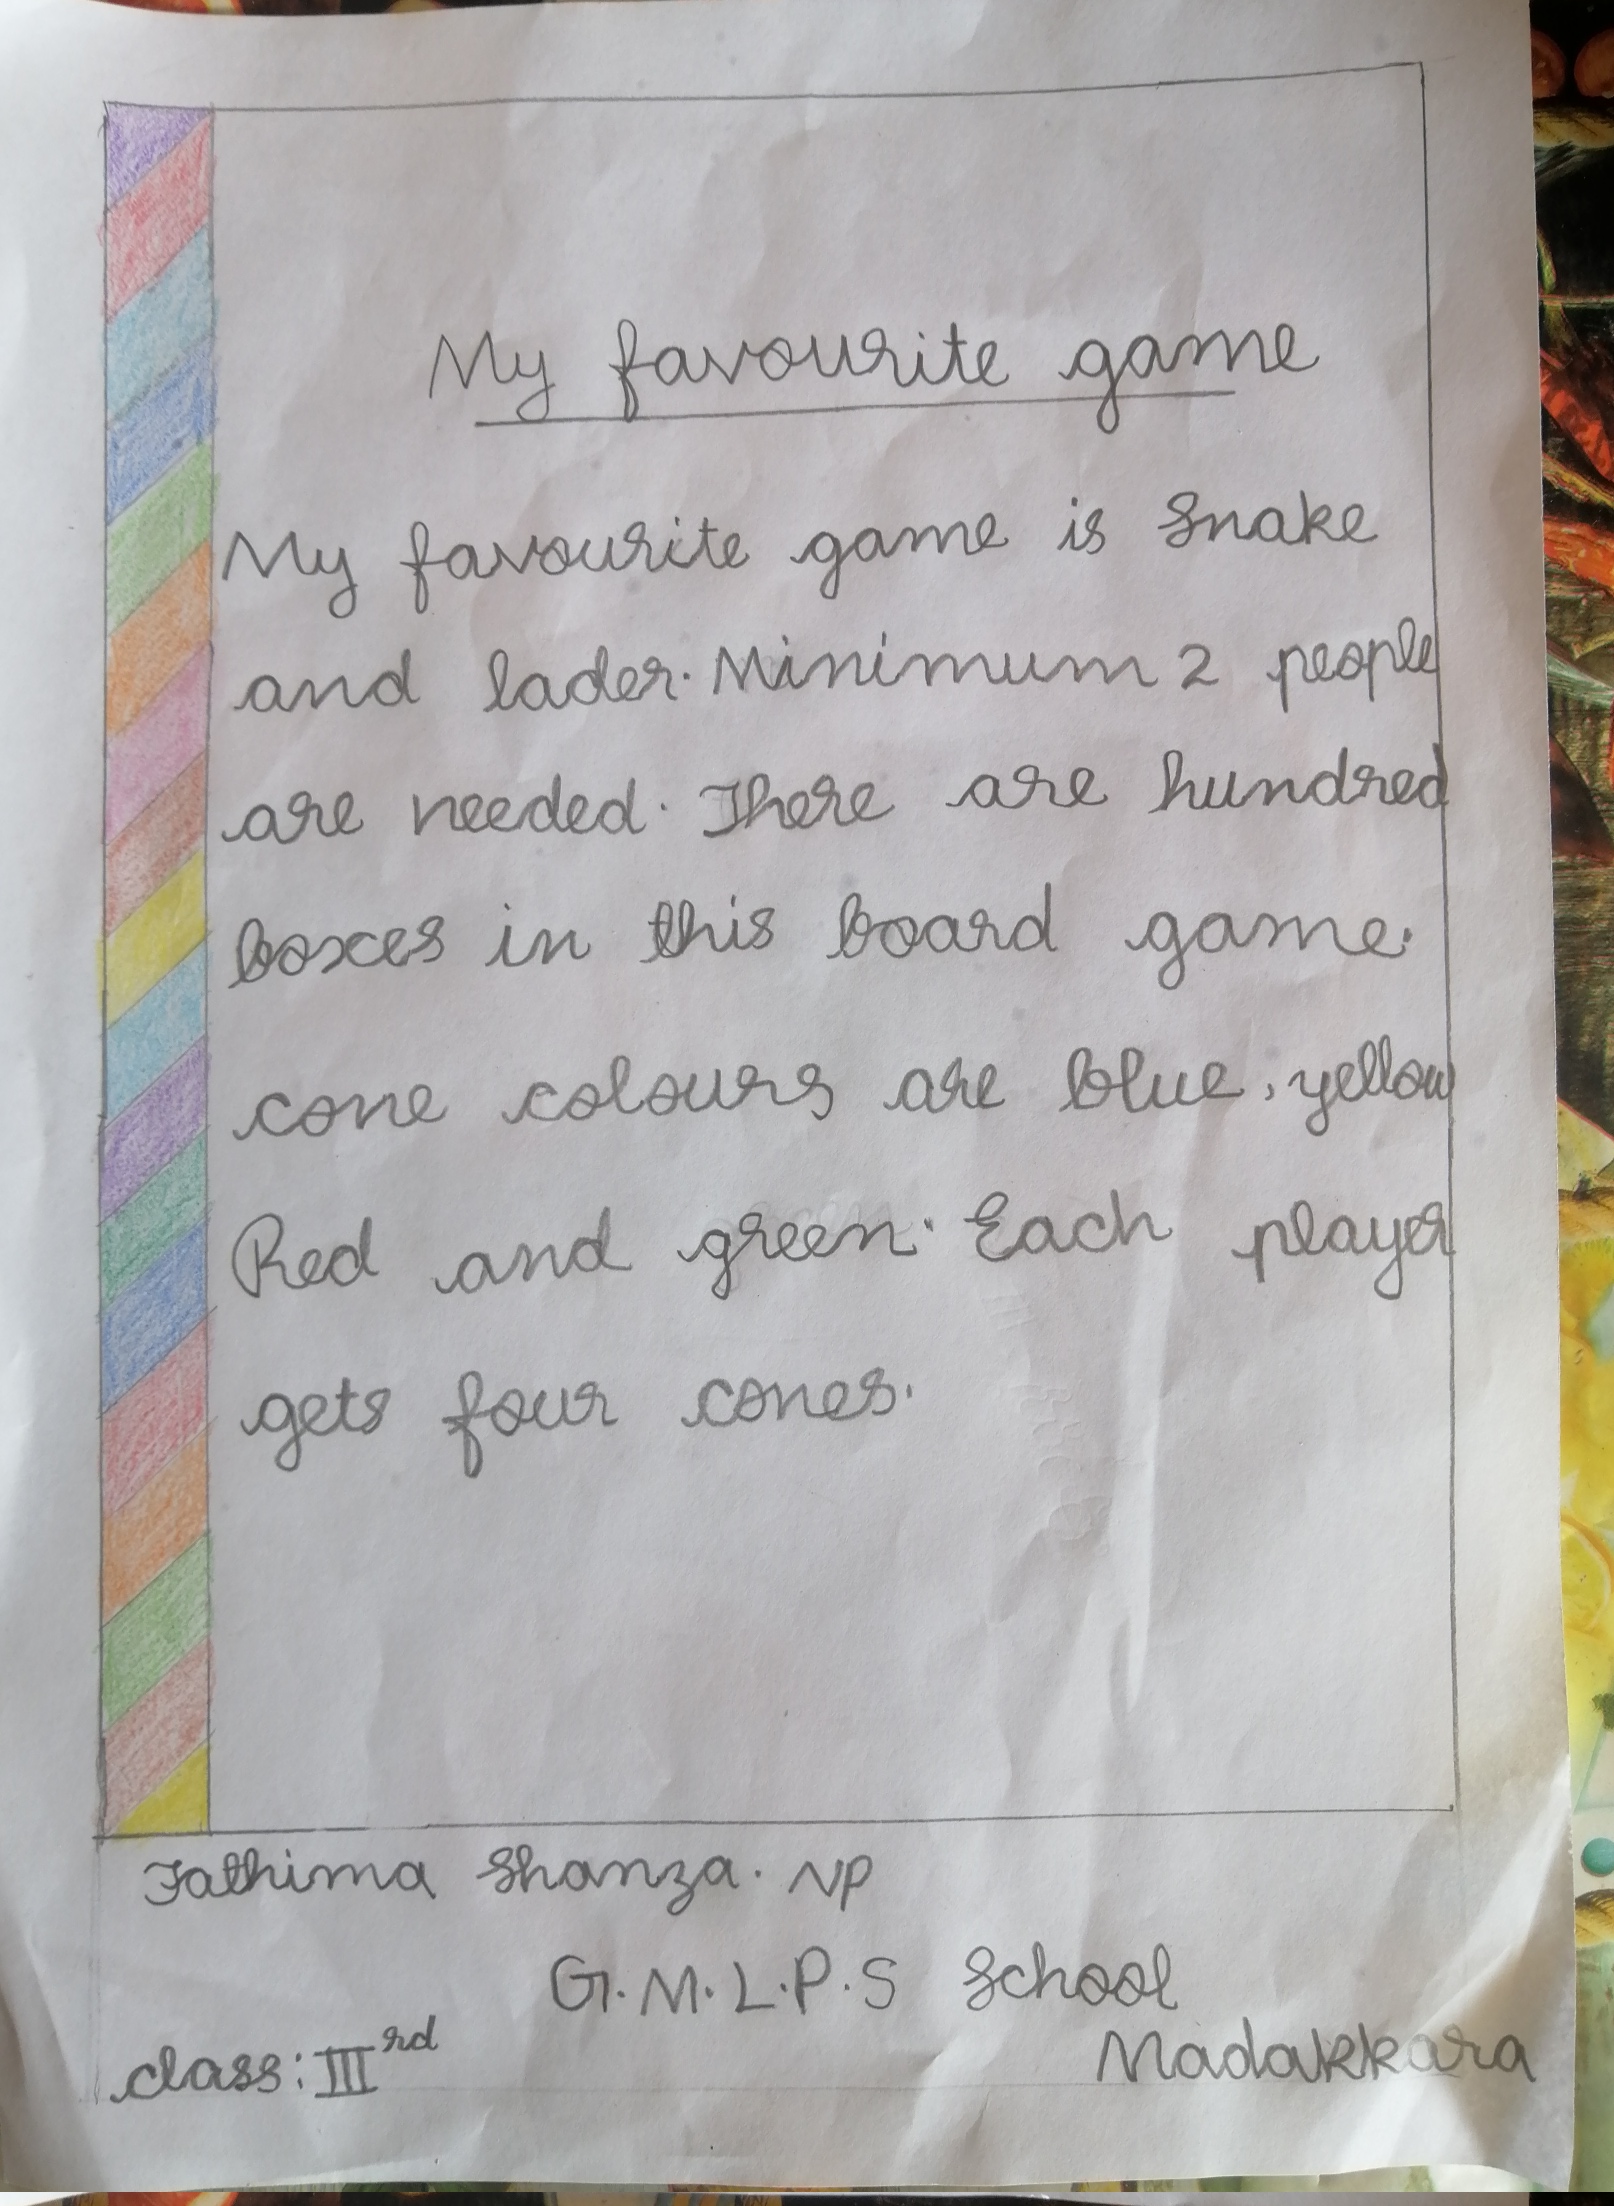 My favourite game
My favourite game is Snake
and lader. Minimum 2 people
are needed. There are hundred
boxes in this board game.
cone colours are blue, yellow
Red and green. Each player
gets four cones.
Fathima Shanza. NP
G.M.L.P.S School
Madakkara
class: III rd